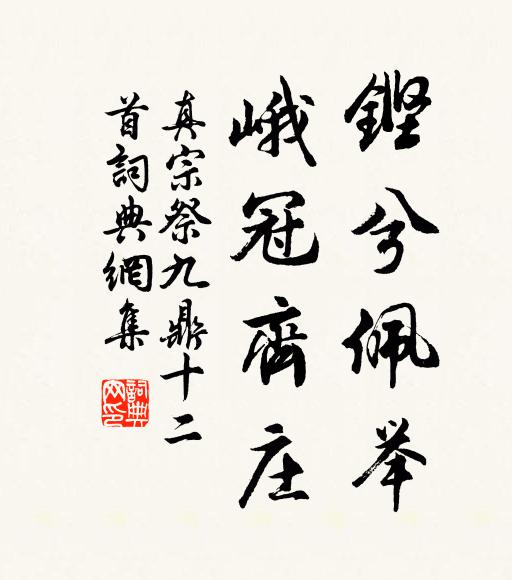 鏗兮佩举
峨冠齊庄
真宗祭九鼎十二
首詞典網集
詞典
网印